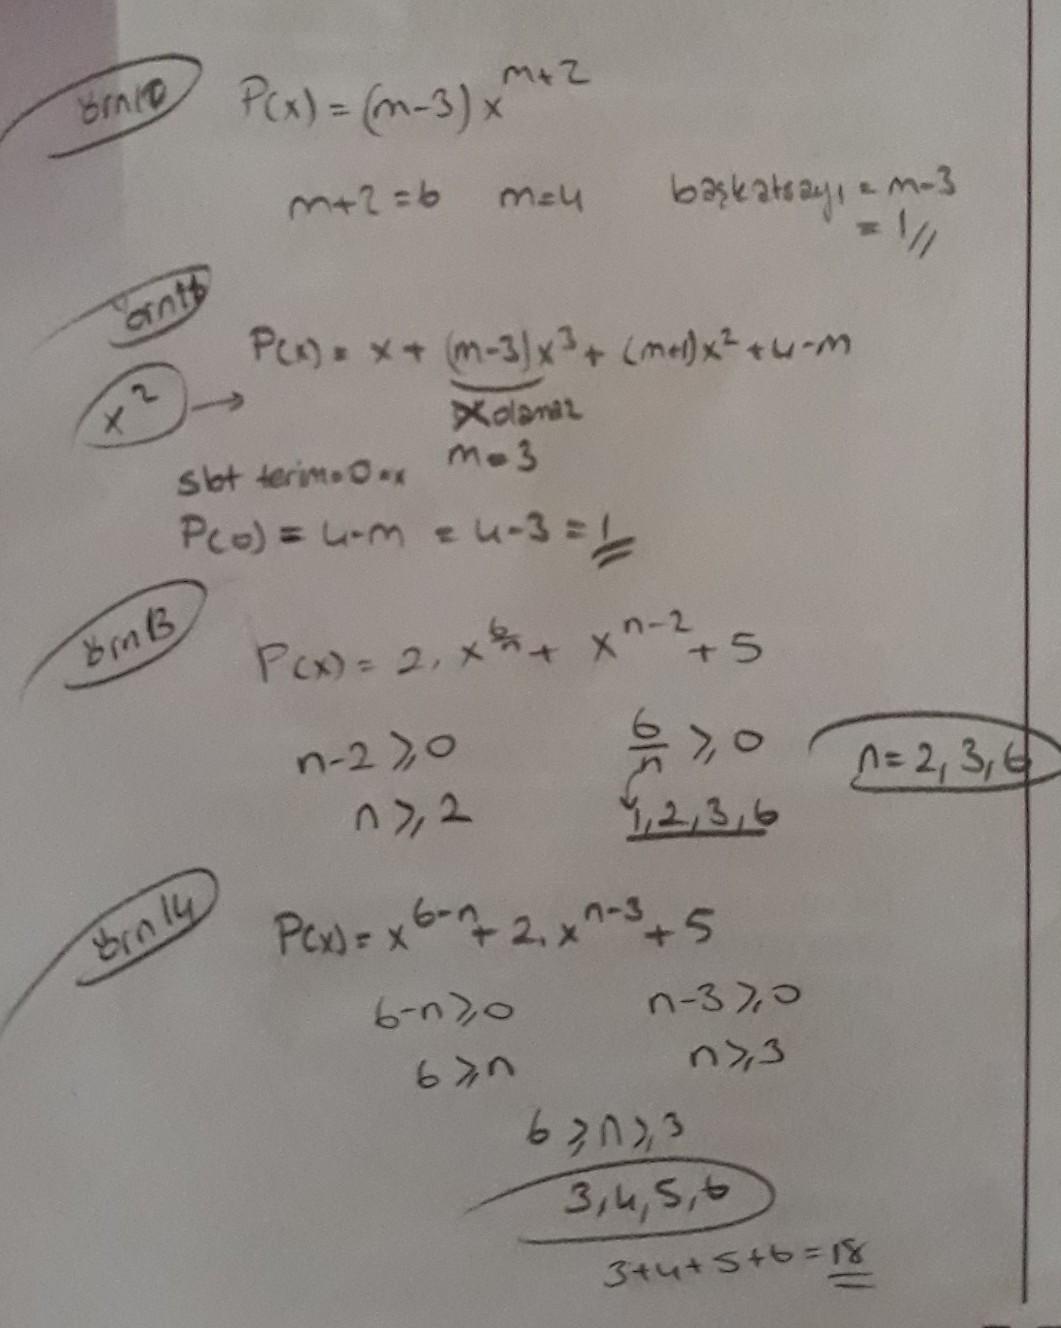 örn10 P(x) = (m-3) x^{m+2}
m+2 = 6 m=4 başkatsayı = m-3
= 1//
örn11
P(x) = x + (m-3)x³ + (m+1)x² + 4-m
x² →
olamaz
m=3
sbt terim
P(0) = 4-m = 4-3 = 1
örn13
P(x) = 2. x^{6/n} + x^{n-2} + 5
n-2 ≥ 0 6/n ≥ 0 n= 2, 3, 6
n ≥ 2 1, 2, 3, 6
örn 14
P(x) = x^{6-n} + 2. x^{n-3} + 5
6-n ≥ 0 n-3 ≥ 0
6 ≥ n n ≥ 3
6 ≥ n ≥ 3
3, 4, 5, 6
3+4+5+6 = 18